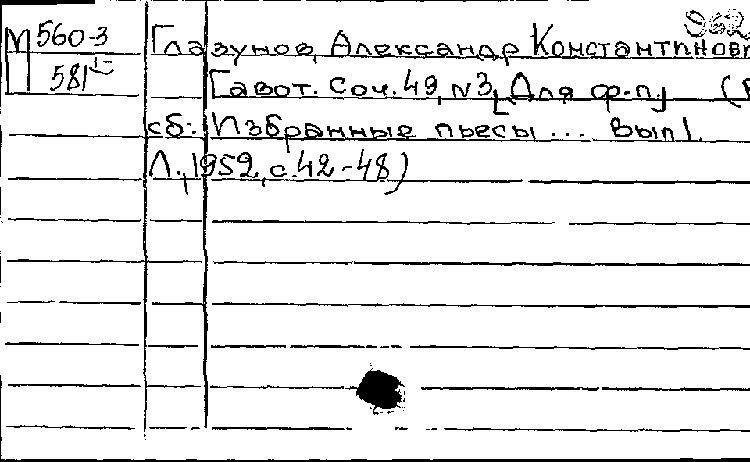 962
М 560-3 Глазунов, Александр Константинов
581 Гавот. Соч. 49, №3, [Для ф.-п.] (В
сб.: Избранные пьесы ... Вып 1.
Л., 1952, с. 42-48)